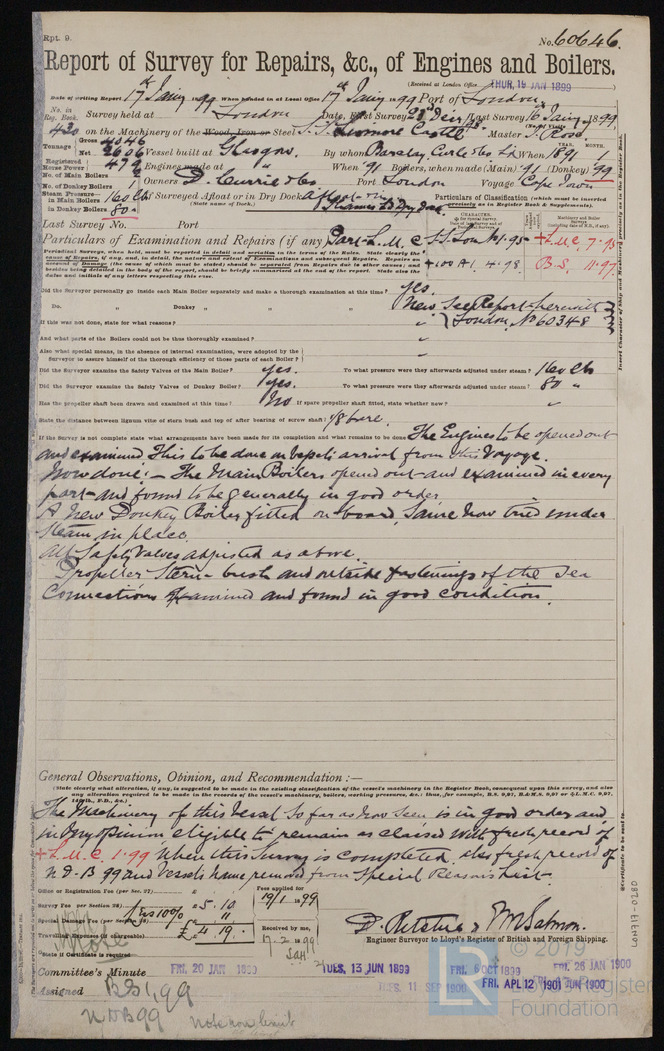 Rpt. 9.
No. 60646.
Report of Survey for Repairs, &c., of Engines and Boilers.
(Received at London Office THUR, 19 JAN 1899
Date of writing Report 17th Jany 1899 When handed in at Local Office 17th Jany 1899 Port of London
No. in Reg. Book. Survey held at London Date, First Survey Last Survey 16 Jany 1899
430 on the Machinery of the Wood, Iron or Steel S.S. Castle Master Rose
Tonnage Gross 4046 Net 2606 Vessel built at Glasgow. By whom Barclay, Curle & Co Ld When 1891
Registered Horse Power Engines made at " When '91 Boilers, when made (Main) '91 (Donkey) 99
No. of Main Boilers
No. of Donkey Boilers 1 Owners D. Currie & Co Port London Voyage Cape Town
Steam Pressure in Main Boilers 160 lbs If Surveyed Afloat or in Dry Dock Afloat & in
in Donkey Boilers 80 (State name of Dock.) Dry Dock
Particulars of Classification (which must be inserted precisely as in Register Book & Supplements).
Last Survey No. Port
Particulars of Examination and Repairs (if any) Part L.M.C. S.S. Lon 1.95 + L.M.C. 7.95
+100 A1 4.98 B.S. 11.97
Periodical Surveys, when held, must be reported in detail and seriatim in the terms of the Rules. State clearly the cause of Repairs, if any, and, in detail, the nature and extent of Examinations and subsequent Repairs. Repairs on account of Damage (the cause of which must be stated) should be separated from Repairs due to other causes; and besides being detailed in the body of the report, should be briefly summarised at the end of the report. State also the dates and initials of any letters respecting this case.
Did the Surveyor personally go inside each Main Boiler separately and make a thorough examination at this time? yes.
Do. " Donkey " " " " New See Report herewith
If this was not done, state for what reasons? " London, No 60348
And what parts of the Boilers could not be thus thoroughly examined? "
Also what special means, in the absence of internal examination, were adopted by the Surveyor to assure himself of the thorough efficiency of those parts of each Boiler? "
Did the Surveyor examine the Safety Valves of the Main Boiler? yes. To what pressure were they afterwards adjusted under steam? 160 lbs
Did the Surveyor examine the Safety Valves of Donkey Boiler? yes. To what pressure were they afterwards adjusted under steam? 80 "
Has the propeller shaft been drawn and examined at this time? No If spare propeller shaft fitted, state whether new? "
State the distance between lignum vitæ of stern bush and top of after bearing of screw shaft: 1/8 bare.
If the Survey is not complete state what arrangements have been made for its completion and what remains to be done The Engines to be opened out
and examined This to be done on vessel's arrival from this Voyage.
Now done:- The Main Boilers opened out and examined in every
part and found to be generally in good order
A New Donkey Boiler fitted on board, Same now tried under
Steam, in place.
All Safety Valves adjusted as above.
Propeller Stern bush and outside fastenings of the Sea
Connections Examined and found in good condition.
General Observations, Opinion, and Recommendation:—
(State clearly what alteration, if any, is suggested to be made in the existing classification of the vessel's machinery in the Register Book, consequent upon this survey, and also any alteration required to be made in the records of the vessel's machinery, boilers, working pressures, &c.: thus, for example, B.S. 9,97, B.&M.S. 9,97 or L.M.C. 9,97, 140 lb., F.D., &c.)
The Machinery of this Vessel So far as now Seen is in good order and,
in my opinion eligible to remain as classed with fresh record of
+ L.M.C. 1.99 When this Survey is completed, also fresh record of
N.D.B 99 and Vessel's Name removed from Special Reasons List.
Office or Registration Fee (per Sec. 27)
Survey Fee (per Section 28) £ 5.10
Special Damage Fee (per Section) Less 10% 11
Travelling Expenses (if chargeable) £4.19.
Fees applied for 19/1 1899
Received by me, 17.2.1899
State if Certificate is required
D. Ritchie & Salmon.
Engineer Surveyor to Lloyd's Register of British and Foreign Shipping.
Committee's Minute FRI. 20 JAN 1899 TUES, 13 JUN 1899 FRI. 6 OCT 1899 FRI. 26 JAN 1900
TUES. 11 SEP 1900 FRI. APL 12 1901 JUN 1900
Assigned BS 1,99
NDB 99
LON717-0280
© 2019
LR
Lloyd's Register
Foundation